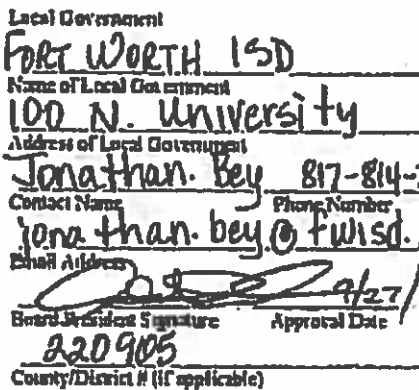 Local Government
FORT WORTH ISD
Name of Local Government
100 N. University
Address of Local Government
Jonathan. Bey 817-814-
Contact Name Phone Number
jonathan.bey@fwisd.
Email Address
4/27/
Board President Signature Approval Date
220905
County/District # (if applicable)